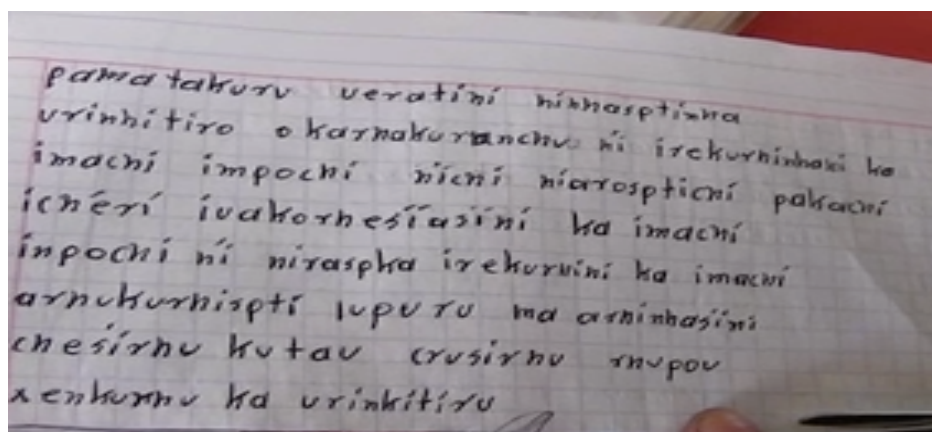 pamatakuru veratini ninhasptinha
urinhitiro okarnakuranchu ni irekurhinhani ka
imachi impochi nichi niarospticni pakachi
icheri ivakorhesiasini ka imachi
inpochi ni niraspka irekurvini ka imachi
arhukurhispti lupuru ma arhinhasini
chesirhu kutau crusirhu mupou
xenkurhu ka urinkitiru